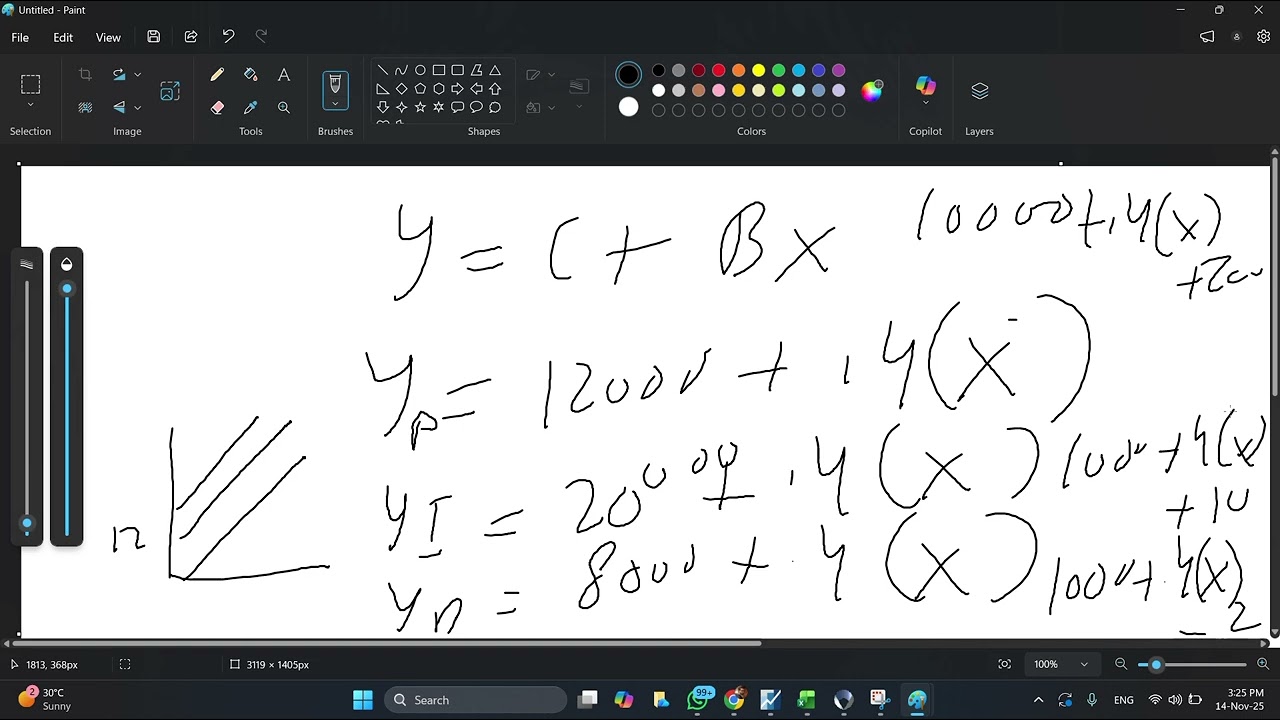 Untitled - Paint
File Edit View
Selection Image Tools Brushes Shapes Colors Copilot Layers
y = C + Bx
10000+.4(x)
+200
yp = 12000 + .4(x)
yI = 20000 + .4(x)
1000+4(x)
+10
yn = 8000 + .4(x)
1000+.4(x)
-2
12
1813, 368px 3119 × 1405px 100%
2 30°C
Sunny
Search
99+
ENG
3:25 PM
14-Nov-25